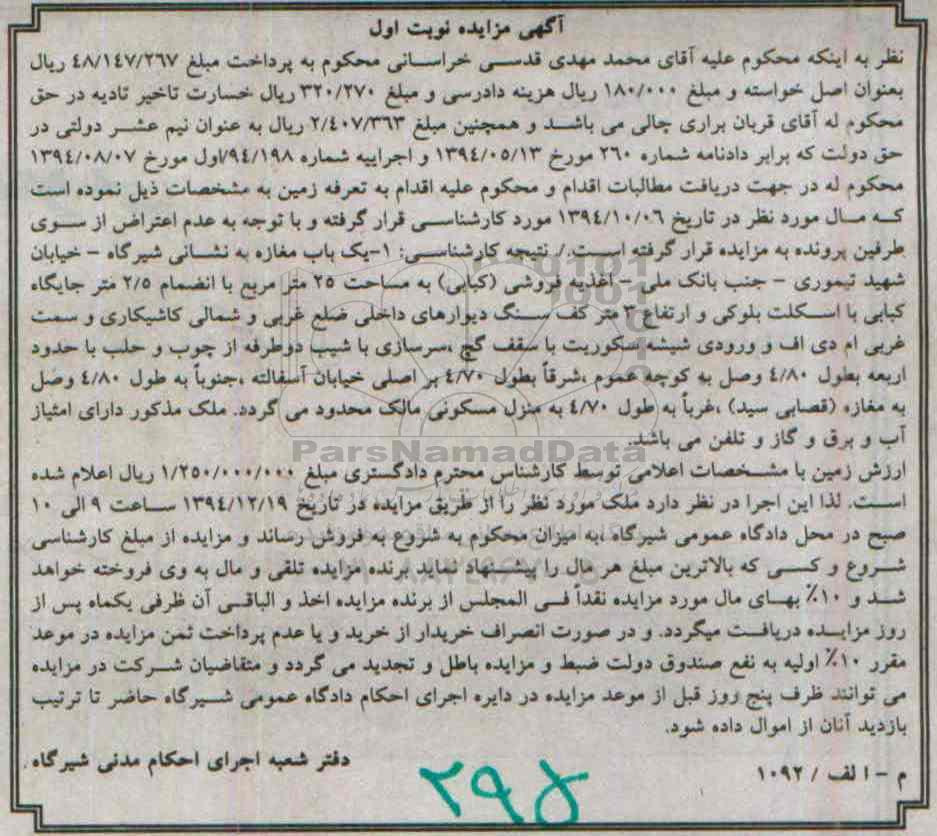 آگهی مزایده نوبت اول
نظر به اینکه محکوم علیه آقای محمد مهدی قدسی خراسانی محکوم به پرداخت مبلغ ۴۸/۱۴۷/۲۶۷ ریال
بعنوان اصل خواسته و مبلغ ۱۸۰/۰۰۰ ریال هزینه دادرسی و مبلغ ۳۲۰/۲۷۰ ریال خسارت تاخیر تادیه در حق
محکوم له آقای قربان براری چالی می باشد و همچنین مبلغ ۲/۴۰۷/۳۶۳ ریال به عنوان نیم عشر دولتی در
حق دولت که برابر دادنامه شماره ۲۶۰ مورخ ۱۳۹۴/۰۵/۱۳ و اجراییه شماره ۹۴/۱۹۸/اول مورخ ۱۳۹۴/۰۸/۰۷
محکوم له در جهت دریافت مطالبات اقدام و محکوم علیه اقدام به تعرفه زمین به مشخصات ذیل نموده است
که مال مورد نظر در تاریخ ۱۳۹۴/۱۰/۰۶ مورد کارشناسی قرار گرفته و با توجه به عدم اعتراض از سوی
طرفین پرونده به مزایده قرار گرفته است./ نتیجه کارشناسی: ۱-یک باب مغازه به نشانی شیرگاه - خیابان
شهید تیموری - جنب بانک ملی - اغذیه فروشی (کبابی) به مساحت ۲۵ متر مربع با انضمام ۲/۵ متر جایگاه
کبابی با اسکلت بلوکی و ارتفاع ۳ متر کف سنگ دیوارهای داخلی ضلع غربی و شمالی کاشیکاری و سمت
غربی ام دی اف و ورودی شیشه سکوریت با سقف گچ ،سرسازی با شیب دوطرفه از چوب و حلب با حدود
اربعه بطول ۴/۸۰ وصل به کوچه عموم ،شرقاً بطول ۴/۷۰ بر اصلی خیابان آسفالته ،جنوباً به طول ۴/۸۰ وصل
به مغازه (قصابی سید) ،غرباً به طول ۴/۷۰ به منزل مسکونی مالک محدود می گردد. ملک مذکور دارای امتیاز
آب و برق و گاز و تلفن می باشد.
ParsNamadData
ارزش زمین با مشخصات اعلامی توسط کارشناس محترم دادگستری مبلغ ۱/۲۵۰/۰۰۰/۰۰۰ ریال اعلام شده
است. لذا این اجرا در نظر دارد ملک مورد نظر را از طریق مزایده در تاریخ ۱۳۹۴/۱۲/۱۹ ساعت ۹ الی ۱۰
صبح در محل دادگاه عمومی شیرگاه ،به میزان محکوم به شروع به فروش رساند و مزایده از مبلغ کارشناسی
شروع و کسی که بالاترین مبلغ هر مال را پیشنهاد نماید برنده مزایده تلقی و مال به وی فروخته خواهد
شد و ۱۰٪ بهای مال مورد مزایده نقداً فی المجلس از برنده مزایده اخذ و الباقی آن ظرفی یکماه پس از
روز مزایده دریافت میگردد. و در صورت انصراف خریدار از خرید و یا عدم پرداخت ثمن مزایده در موعد
مقرر ۱۰٪ اولیه به نفع صندوق دولت ضبط و مزایده باطل و تجدید می گردد و متقاضیان شرکت در مزایده
می توانند ظرف پنج روز قبل از موعد مزایده در دایره اجرای احکام دادگاه عمومی شیرگاه حاضر تا ترتیب
بازدید آنان از اموال داده شود.
دفتر شعبه اجرای احکام مدنی شیرگاه
م - الف / ۱۰۹۲